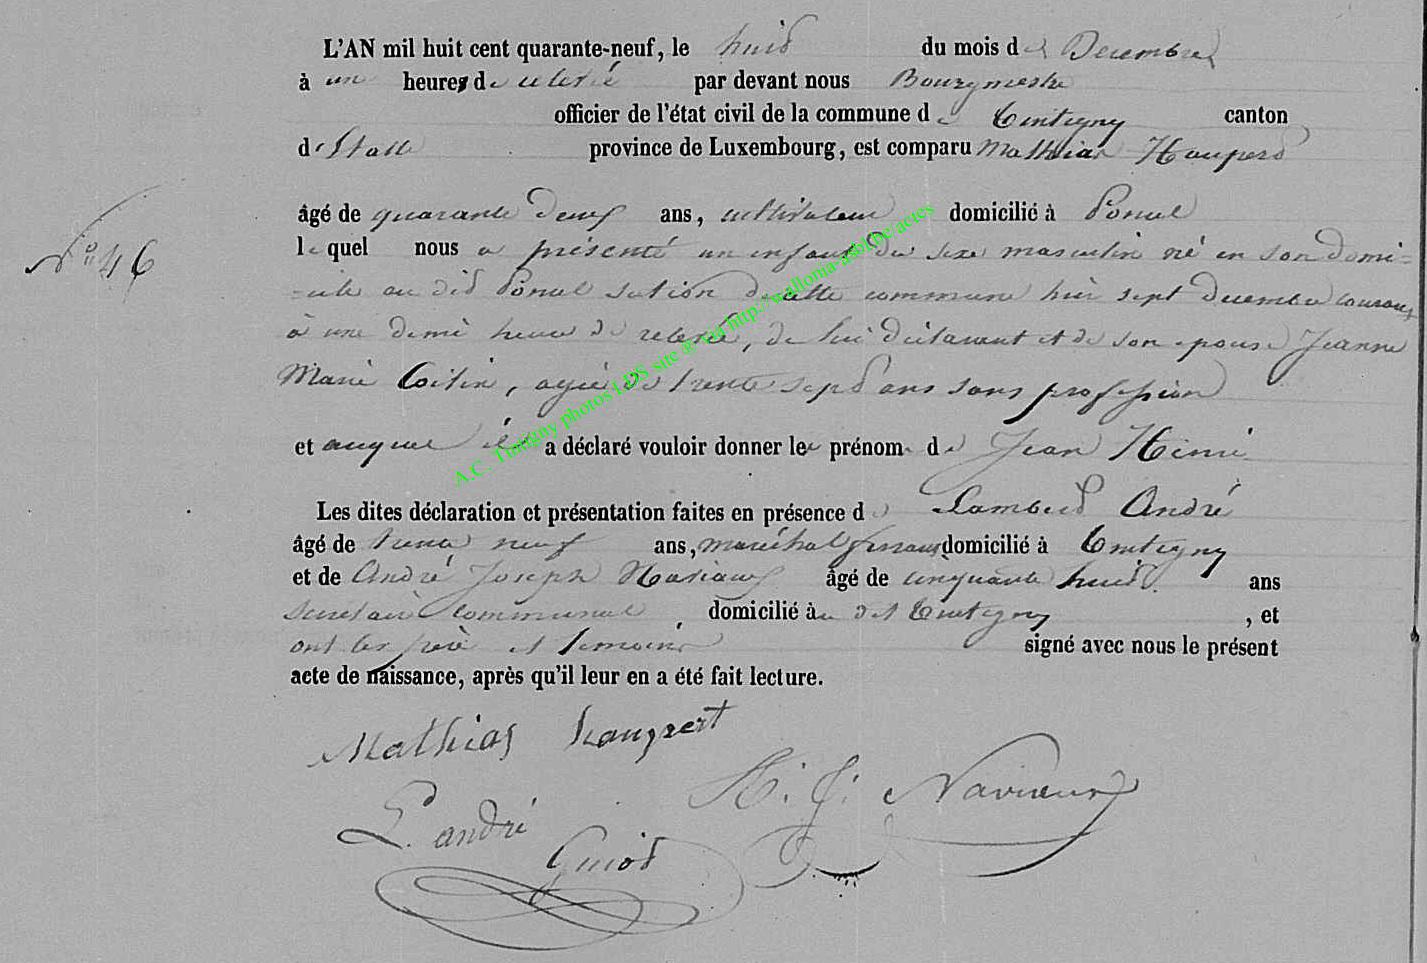 L'AN mil huit cent quarante-neuf, le huit du mois de Decembre
à un heures de relevé par devant nous Bourgmestre
officier de l'état civil de la commune de Tintigny canton
d'Etalle province de Luxembourg, est comparu Mathias Haupert
âgé de quarante deux ans, cultivateur domicilié à Poncel
N° 46
lequel nous a présenté un enfant du sexe masculin né en son domi-
-cile au dit Poncel section de cette commune hier sept decembre courant
à une demi heure de relevé, de lui déclarant et de son epouse Jeanne
Marie agée de trente sept ans sans profession
et auquel il a déclaré vouloir donner les prénoms de Jean Henri
Les dites déclaration et présentation faites en présence de Lambert André
âgé de trente neuf ans, maréchal ferrant domicilié à Tintigny
et de André Joseph âgé de cinquante huit ans
secretaire communal, domicilié au dit Tintigny, et
ont les père et temoins signé avec nous le présent
acte de naissance, après qu'il leur en a été fait lecture.
Mathias Haupert
A. J.
L. andré
Guiot
A.C. Tintigny photos LDS site @ via http://wallonia-asbl.be/actes